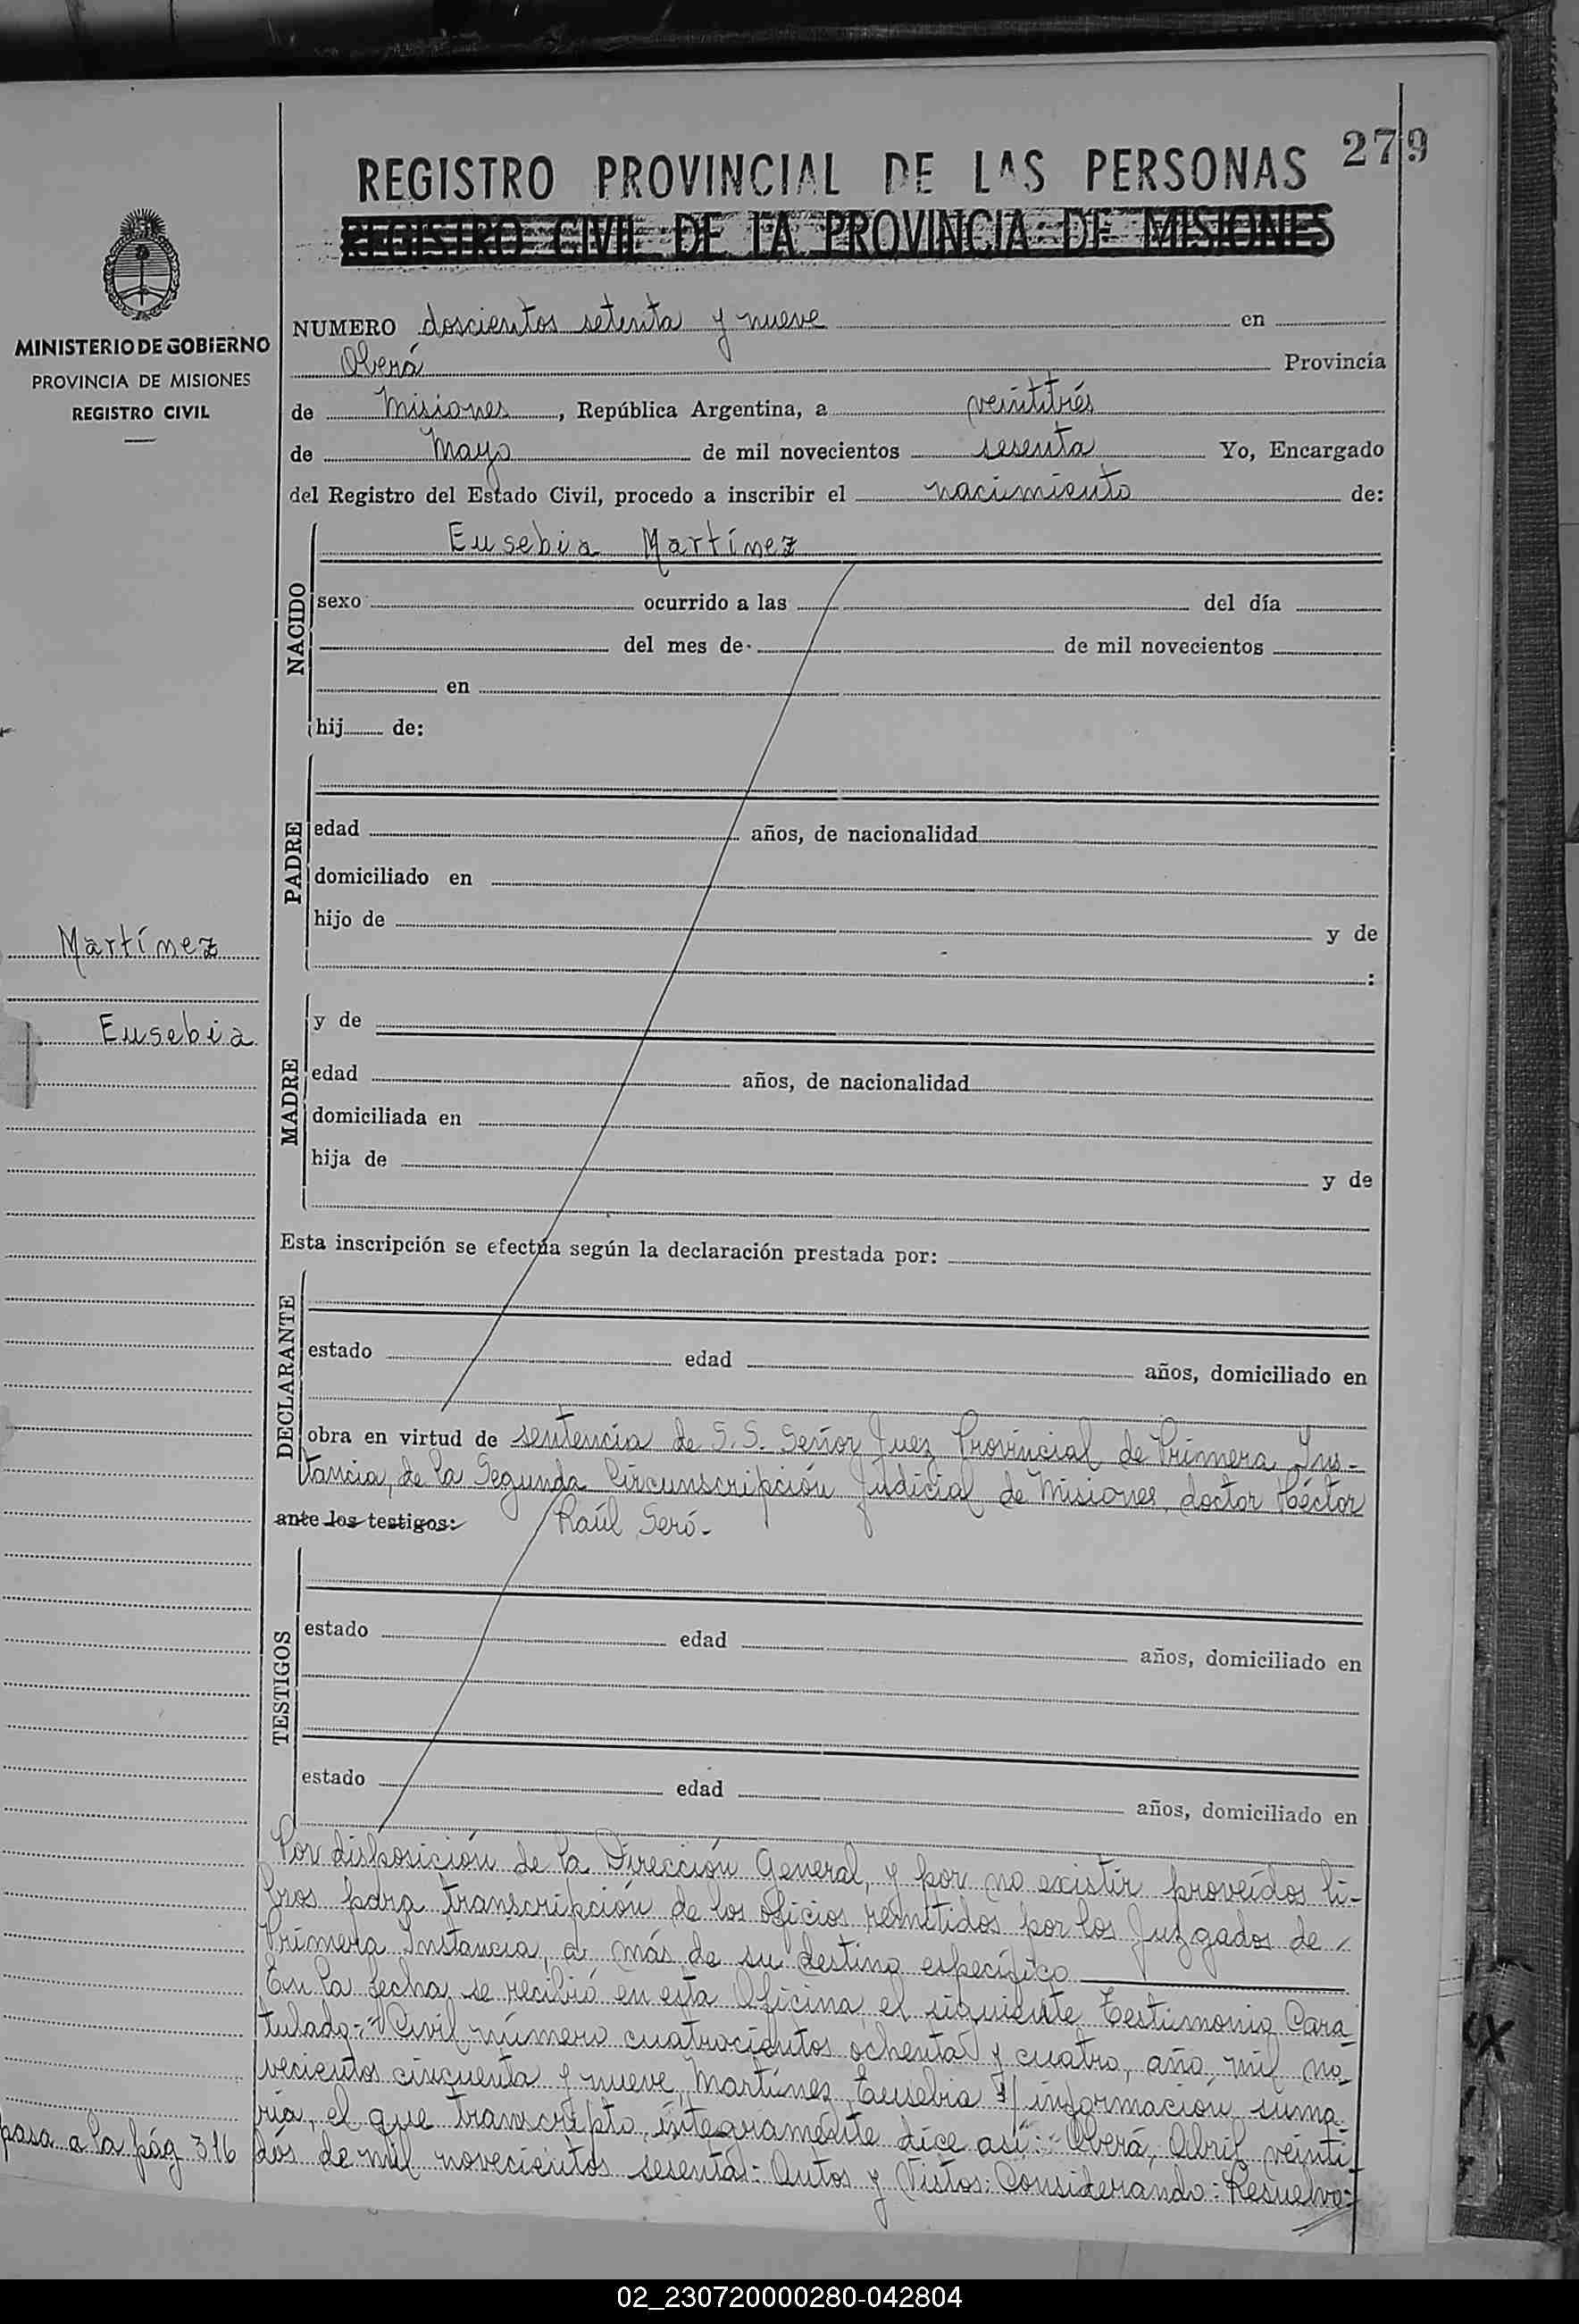 279
REGISTRO PROVINCIAL DE LAS PERSONAS
REGISTRO CIVIL DE LA PROVINCIA DE MISIONES
MINISTERIO DE GOBIERNO
PROVINCIA DE MISIONES
REGISTRO CIVIL
NUMERO doscientos setenta y nueve en
Oberá Provincia
de Misiones, República Argentina, a veintitrés
de Mayo de mil novecientos sesenta Yo, Encargado
del Registro del Estado Civil, procedo a inscribir el nacimiento de:
NACIDO
Eusebia Martínez
sexo ocurrido a las del día
del mes de de mil novecientos
en
hij de:
PADRE
edad años, de nacionalidad
domiciliado en
hijo de y de
:
Martínez
Eusebia
MADRE
y de
edad años, de nacionalidad
domiciliada en
hija de y de
Esta inscripción se efectúa según la declaración prestada por:
DECLARANTE
estado edad años, domiciliado en
obra en virtud de sentencia de S.S. Señor Juez Provincial de Primera Ins-
tancia, de la Segunda Circunscripción Judicial de Misiones, doctor Héctor
ante los testigos: Raúl Seró.-
TESTIGOS
estado edad años, domiciliado en
estado edad años, domiciliado en
Por disposición de la Dirección General, y por no existir proveídos li-
bros para transcripción de los oficios remitidos por los Juzgados de
Primera Instancia, a más de su destino específico
En la fecha se recibió en esta Oficina el siguiente Testimonio Cara
tulado:-"Civil número cuatrocientos ochenta y cuatro, año mil no-
vecientos cincuenta y nueve, Martínez, Eusebia s/ información suma
ria, el que transcripto íntegramente dice así:- Oberá, Abril veinti
dós de mil novecientos sesenta:- Autos y Vistos: Considerando: Resuelvo:-
pasa a la pág 316
02_230720000280-042804